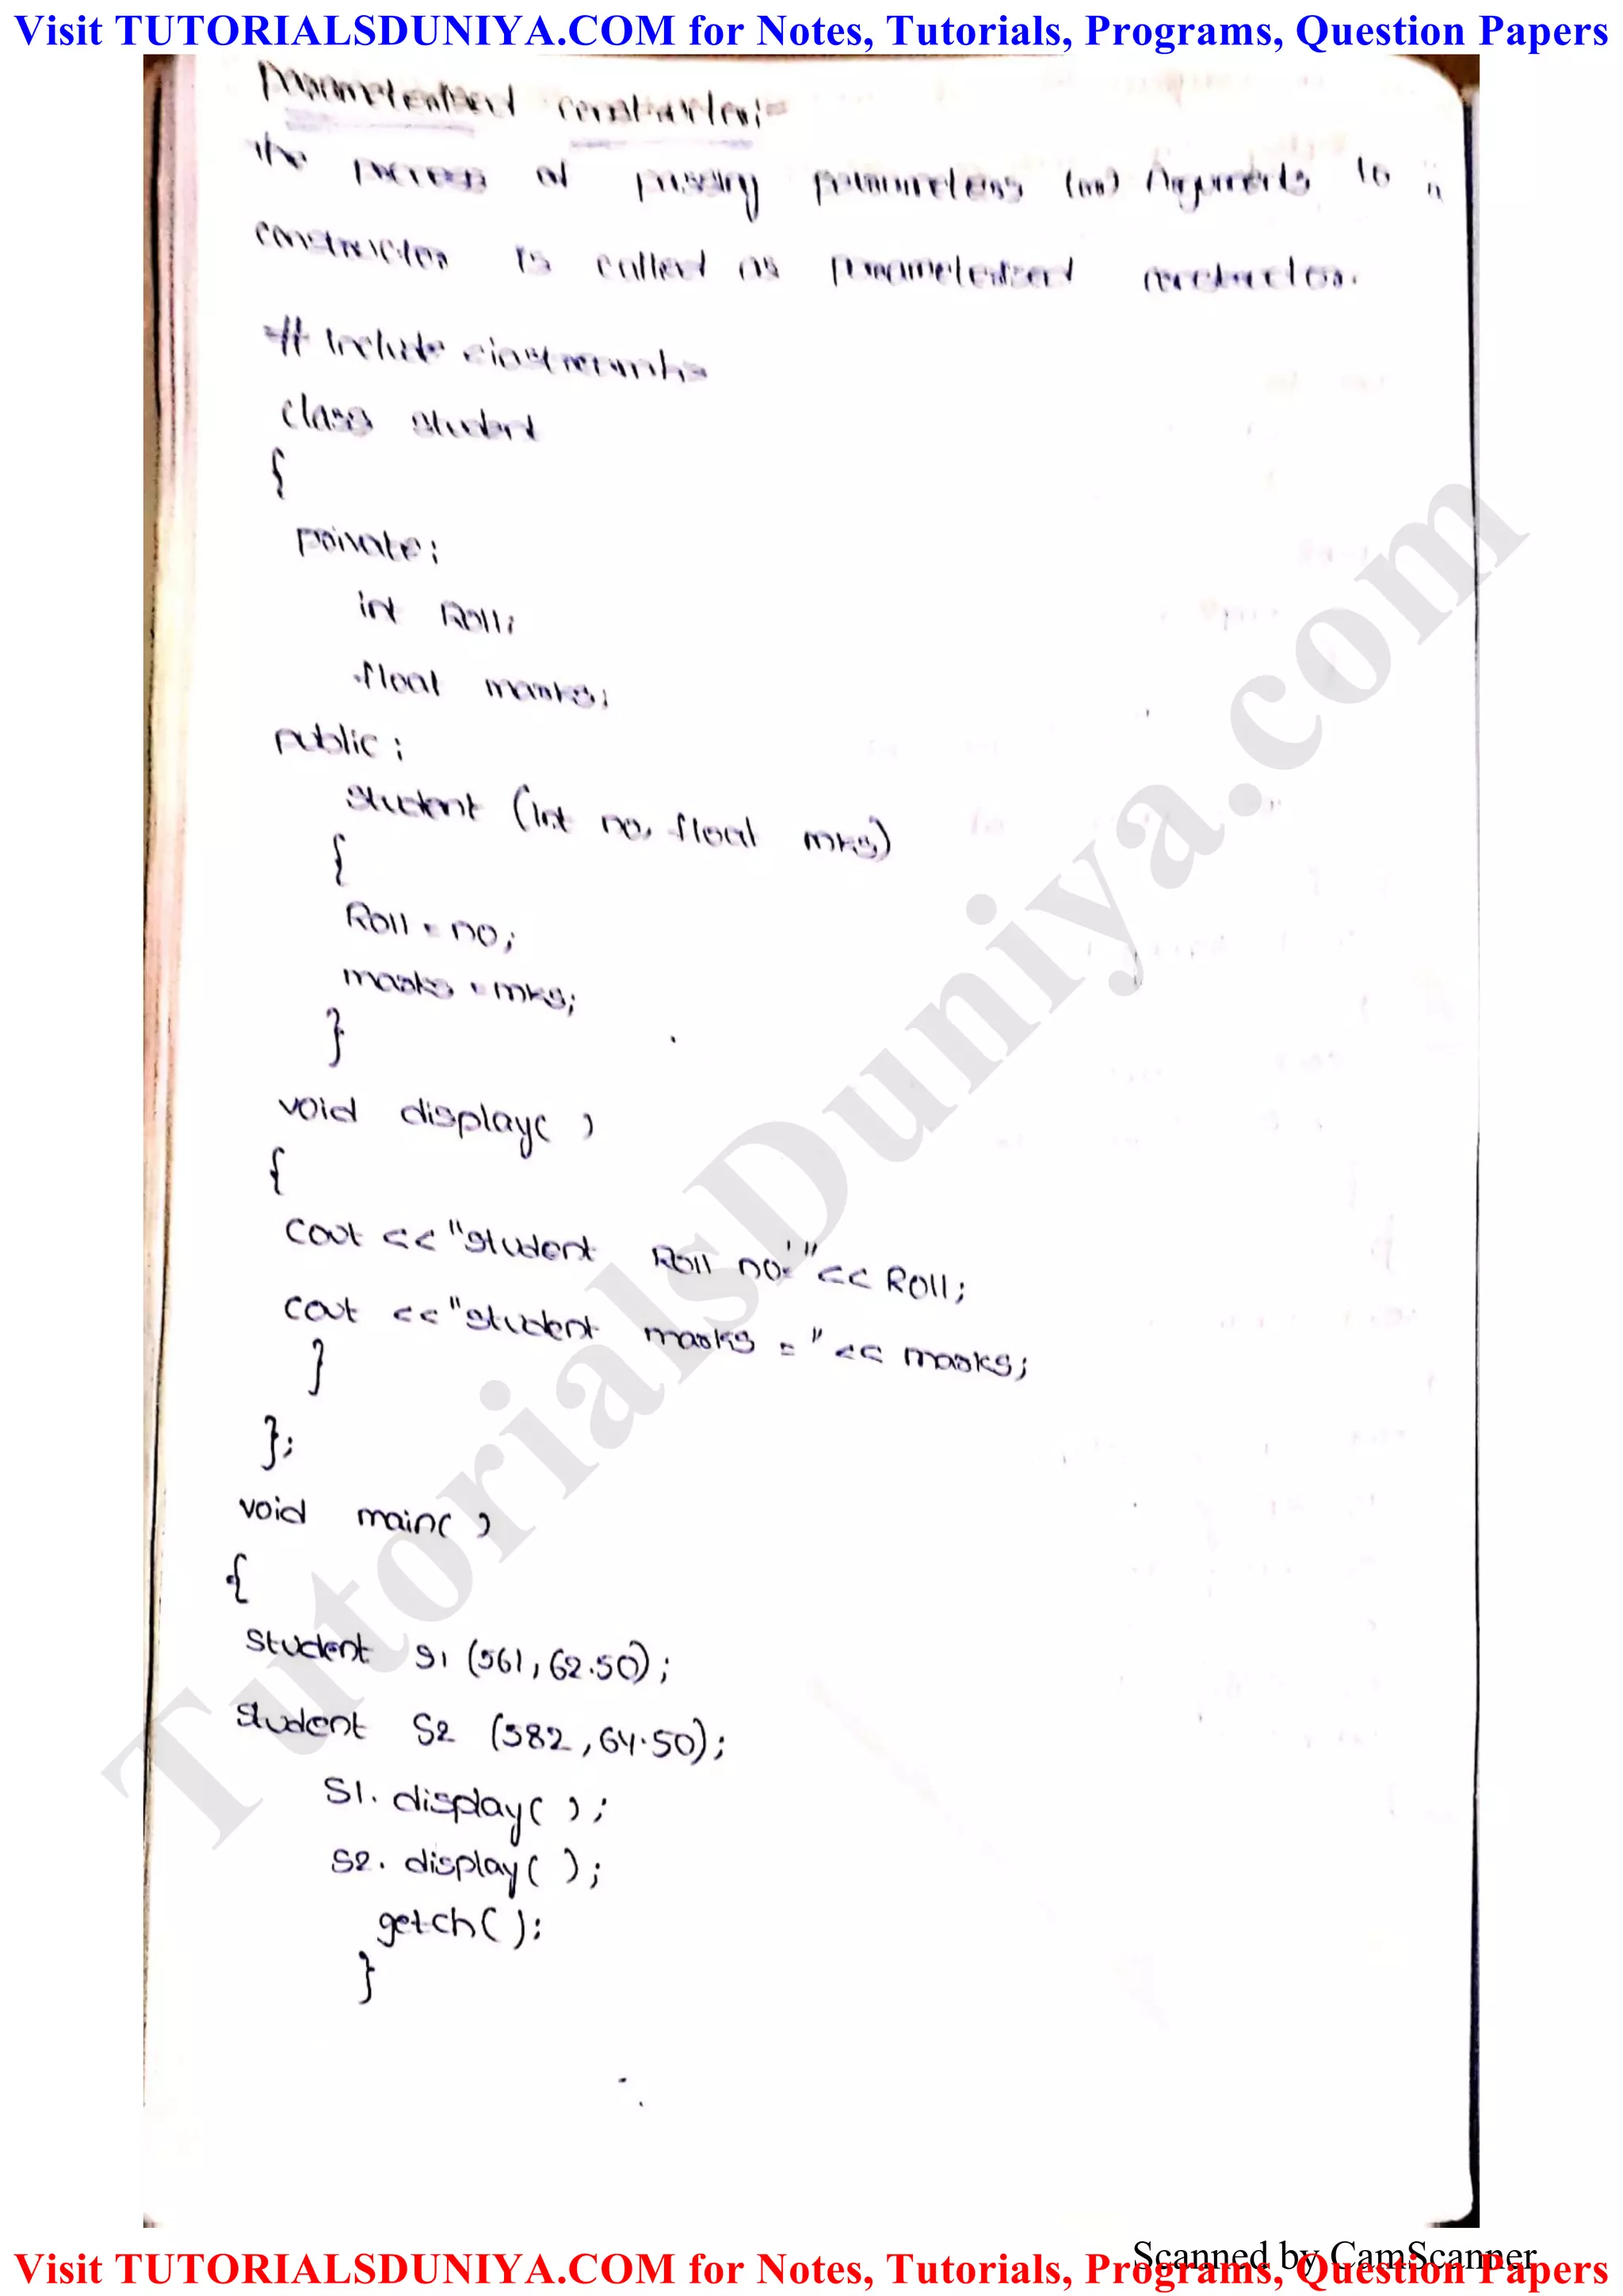 Visit TUTORIALSDUNIYA.COM for Notes, Tutorials, Programs, Question Papers
Parameterized constructor:-
The process of passing parameters (or) Arguments to a
constructor is called as parameterized constructor.
# include <iostream.h>
class student
{
private:
int Roll;
float marks;
public:
student (int no, float mks)
{
Roll = no;
marks = mks;
}
void display( )
{
cout << "student Roll no:" << Roll;
cout << "student marks = " << marks;
}
};
void main( )
{
student S1 (561, 62.50);
student S2 (582, 64.50);
S1. display( );
S2. display( );
getch( );
}
TutorialsDuniya.com
Scanned by CamScanner
Visit TUTORIALSDUNIYA.COM for Notes, Tutorials, Programs, Question Papers